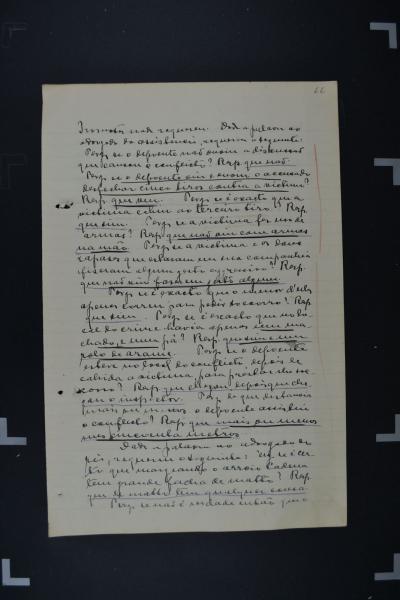 66
nada requereu. Dada a palavra ao
advogado da assistencia, requereu o seguinte:
Perg. se o depoente não ouviu a discussão
que causou o conflicto? Resp. que não.
Perg. se o depoente viu e ouvio o accusado
desfechar cinco tiros contra a victima?
Resp. que sim. Perg. se é exacto que a
victima cahiu ao terceiro tiro? Resp.
que sim. Perg. se a victima fez uso de
armas? Resp. que não viu com armas
na mão. Perg. se a victima e os dous
rapazes que estavam em sua companhia
fizeram algum gesto aggressivo? Resp.
que não viu fazerem gesto algum.
Perg. se é exacto que o menor d'elles
apenas correu para pedir soccorro? Resp.
que sim. Perg. se é exacto que no lo-
cal do crime havia apenas um ma-
chado, e uma pá? Resp. que sim e um
rolo de arame. Perg. se o depoente
esteve no local do conflicto depois de
cahida a victima, para prestar-lhe soc-
corro? Resp. que depois que che-
gou o inspector. Perg. de que distancia
mais ou menos o depoente assistiu
o conflicto? Resp. que mais ou menos
uns cincoenta metros.
Dada a palavra ao advogado do
réo, requereu o seguinte: se é cer-
to que margeando o arroio Cadena
tem grande facha de matto? Resp.
que de matto tem qualquer cousa.
Perg. se não é verdade então que o